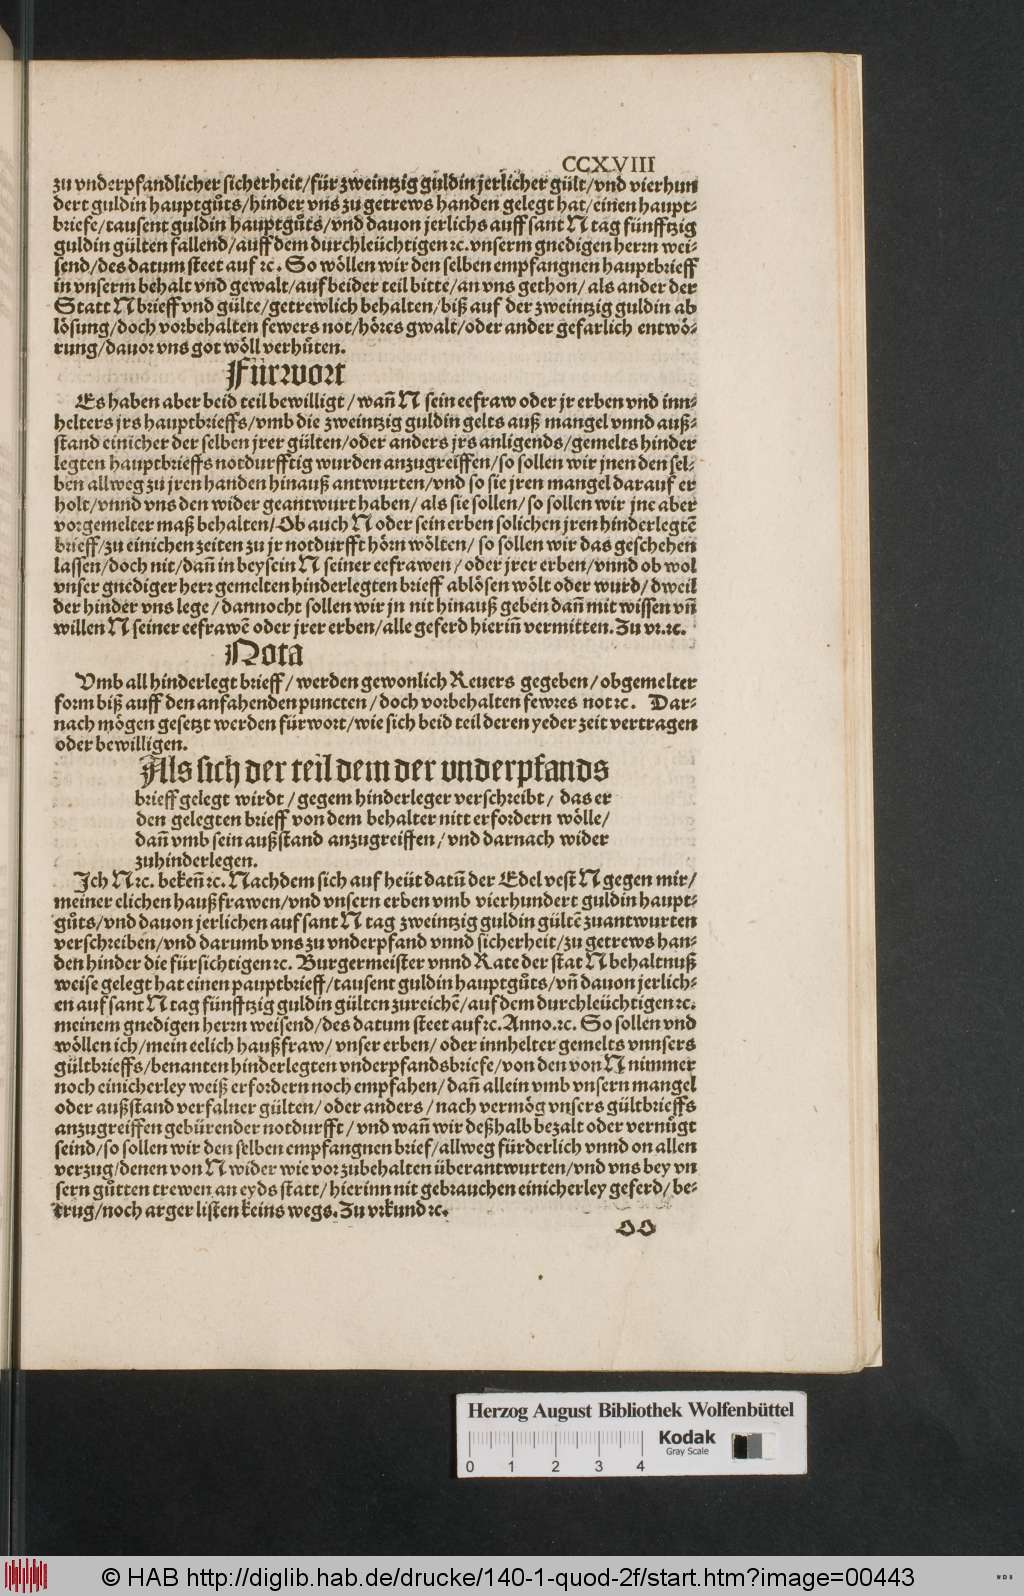 CCXVIII
zu vnderpfandlicher sicherheit/für zweintzig guldin jerlicher gült/vnd vierhun
dert guldin hauptgůts/hinder vns zu getrews handen gelegt hat/einen haupt-
briefe/tausent guldin hauptgůts/vnd dauon jerlichs auff sant N tag fünfftzig
guldin gülten fallend/auff dem durchleüchtigen ꝛc.vnserm gnedigen herrn wei-
send/des datum steet auf ꝛc. So wöllen wir den selben empfangnen hauptbrieff
in vnserm behalt vnd gewalt/auf beider teil bitte/an vns gethon/als ander der
Statt N brieff vnd gülte/getrewlich behalten/biß auf der zweintzig guldin ab
lösung/doch vorbehalten fewers not/höres gwalt/oder ander gefarlich entwö-
rung/dauor vns got wöll verhüten.
Fürwort
Es haben aber beid teil bewilligt/wañ N sein eefraw oder jr erben vnd inn-
helters jrs hauptbrieffs/vmb die zweintzig guldin gelts auß mangel vnnd auß-
stand einicher der selben jrer gülten/oder anders jrs anligends/gemelts hinder
legten hauptbrieffs notdurfftig wurden anzugreiffen/so sollen wir jnen den sel-
ben allweg zu jren handen hinauß antwurten/vnd so sie jren mangel darauf er
holt/vnnd vns den wider geantwurt haben/als sie sollen/so sollen wir jne aber
vorgemelter maß behalten/Ob auch N oder sein erben solichen jren hinderlegtẽ
brieff/zu einichen zeiten zu jr notdurfft hörn wölten/so sollen wir das geschehen
lassen/doch nit/dañ in beysein N seiner eefrawen/oder jrer erben/vnnd ob wol
vnser gnediger herr gemelten hinderlegten brieff ablösen wölt oder wurd/dweil
der hinder vns lege/dannocht sollen wir jn nit hinauß geben dañ mit wissen vñ
willen N seiner eefrawẽ oder jrer erben/alle geferd hieriñ vermitten.Zu vr.ꝛc.
Nota
Vmb all hinderlegt brieff/werden gewonlich Reuers gegeben/obgemelter
form biß auff den anfahenden puncten/doch vorbehalten fewres not ꝛc. Dar-
nach mögen gesetzt werden fürwort/wie sich beid teil deren yeder zeit vertragen
oder bewilligen.
Als sich der teil dem der vnderpfands
brieff gelegt wirdt/gegem hinderleger verschreibt/das er
den gelegten brieff von dem behalter nitt erfordern wölle/
dañ vmb sein außstand anzugreiffen/vnd darnach wider
zuhinderlegen.
Ich N ꝛc. bekeñ ꝛc. Nachdem sich auf heüt datũ der Edel vest N gegen mir/
meiner elichen haußfrawen/vnd vnsern erben vmb vierhundert guldin haupt-
gůts/vnd dauon jerlichen auf sant N tag zweintzig guldin gültẽ zuantwurten
verschreiben/vnd darumb vns zu vnderpfand vnnd sicherheit/zu getrews han-
den hinder die fürsichtigen ꝛc. Burgermeister vnnd Rate der stat N behaltnuß
weise gelegt hat einen pauptbrieff/tausent guldin hauptgůts/vñ dauon jerlich-
en auf sant N tag fünfftzig guldin gülten zureichẽ/auf dem durchleüchtigen ꝛc.
meinem gnedigen herrn weisend/des datum steet auf ꝛc.Anno.ꝛc. So sollen vnd
wöllen ich/mein eelich haußfraw/vnser erben/oder innhelter gemelts vnnsers
gültbrieffs/benanten hinderlegten vnderpfandsbriefe/von den von N nimmer
noch einicherley weiß erfordern noch empfahen/dañ allein vmb vnsern mangel
oder außstand verfalner gülten/oder anders/nach vermög vnsers gültbrieffs
anzugreiffen gebürender notdurfft/vnd wañ wir deßhalb bezalt oder vernügt
seind/so sollen wir den selben empfangnen brief/allweg fürderlich vnnd on allen
verzug/denen von N wider wie vor zubehalten überantwurten/vnd vns bey vn
sern gůtten trewen an eyds statt/hierinn nit gebrauchen einicherley geferd/be-
trug/noch arger listen keins wegs.Zu vrkund ꝛc.
OO
Herzog August Bibliothek Wolfenbüttel
Kodak
Gray Scale
0 1 2 3 4
© HAB http://diglib.hab.de/drucke/140-1-quod-2f/start.htm?image=00443